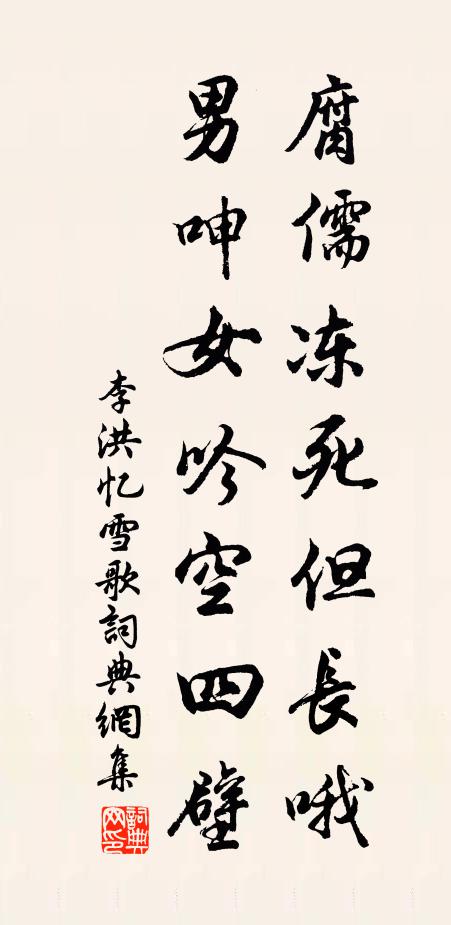 腐儒冻死但長哦
男呻女吟空四壁
李洪忆雪歌詞典網集
詞典
网印